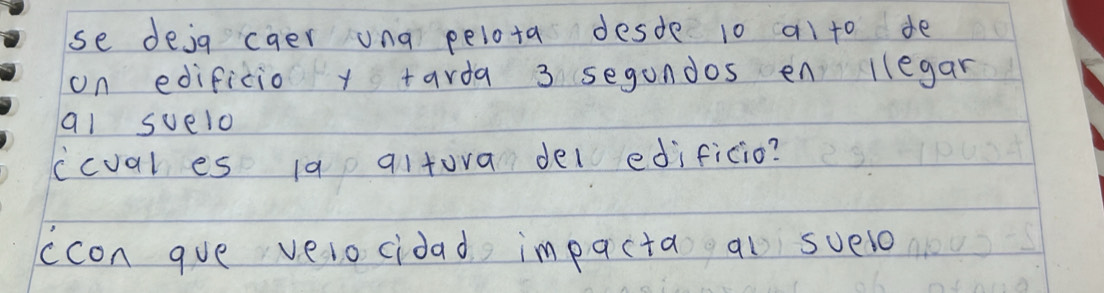 se deja caer una pelota desde lo alto de
un edificio y tarda 3 segundos en llegar
al suelo
¿cual es la altura del edificio?
¿con que velocidad impacta al suelo